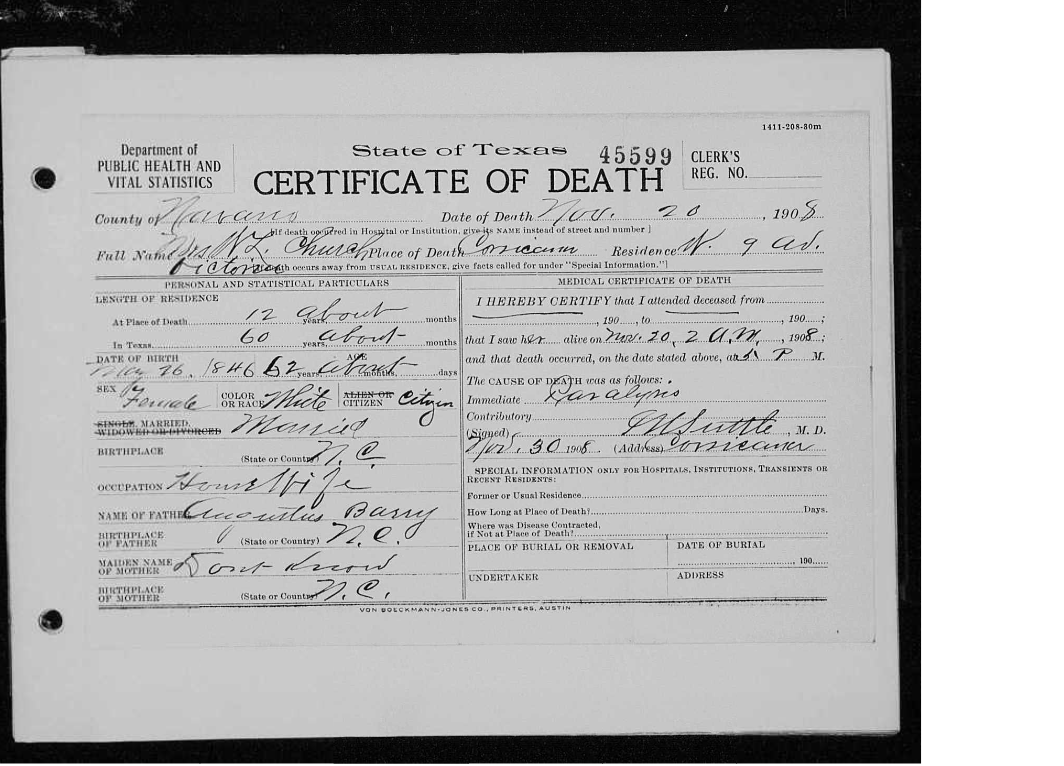 1411-208-30m
Department of PUBLIC HEALTH AND VITAL STATISTICS
State of Texas 45599
CERTIFICATE OF DEATH
CLERK'S REG. NO.
County of Navarro Date of Death Nov. 20, 1908
[If death occurred in Hospital or Institution, give its NAME instead of street and number]
Full Name Mrs W. L. Church Place of Death Corsicana Residence W. 9 Av.
Victoria [If death occurs away from USUAL RESIDENCE, give facts called for under "Special Information."]
PERSONAL AND STATISTICAL PARTICULARS
LENGTH OF RESIDENCE
At Place of Death 12 years, about months
In Texas 60 years, about months
DATE OF BIRTH May 26, 1846 AGE 62 years about months days
SEX Female COLOR OR RACE White ALIEN OR CITIZEN Citizen
SINGLE, MARRIED, WIDOWED OR DIVORCED Married
BIRTHPLACE (State or Country) N.C.
OCCUPATION House Wife
NAME OF FATHER Augustus Barry
BIRTHPLACE OF FATHER (State or Country) N.C.
MAIDEN NAME OF MOTHER Dont know
BIRTHPLACE OF MOTHER (State or Country) N.C.
MEDICAL CERTIFICATE OF DEATH
I HEREBY CERTIFY that I attended deceased from
, 190 , to , 190 ;
that I saw her alive on Nov. 20, 2 A.M., 1908;
and that death occurred, on the date stated above, at 5 P M.
The CAUSE OF DEATH was as follows:
Immediate Paralysis
Contributory
(Signed) Suttle, M. D.
Nov. 30 1908. (Address) Corsicana
SPECIAL INFORMATION ONLY FOR HOSPITALS, INSTITUTIONS, TRANSIENTS OR
RECENT RESIDENTS:
Former or Usual Residence
How Long at Place of Death? Days.
Where was Disease Contracted,
if Not at Place of Death?
PLACE OF BURIAL OR REMOVAL DATE OF BURIAL
, 190
UNDERTAKER ADDRESS
VON BOECKMANN-JONES CO., PRINTERS, AUSTIN